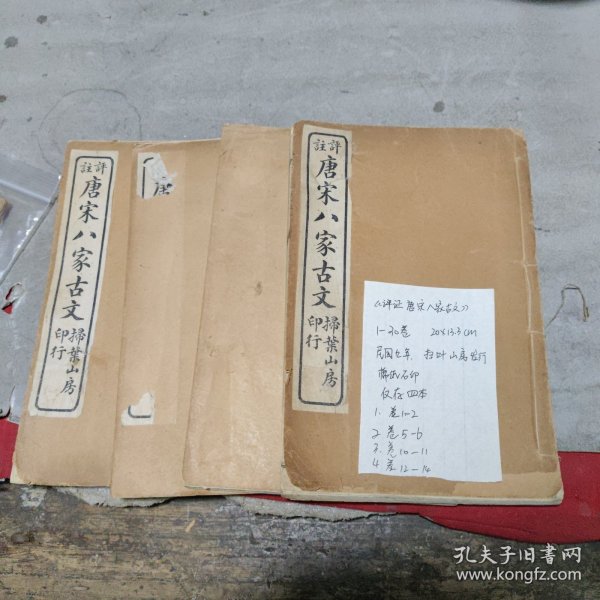 評註
唐宋八家古文
掃葉山房
印行
唐
評註
唐宋八家古文
掃葉山房
印行
《评证唐宋八家古文》
1-30卷 20×13.3CM
民国九年,扫叶山房发行
棉纸石印
仅存四本
1. 卷1-2
2. 卷5-6
3. 卷10-11
4. 卷12-14
孔夫子旧书网
www.kongfz.com